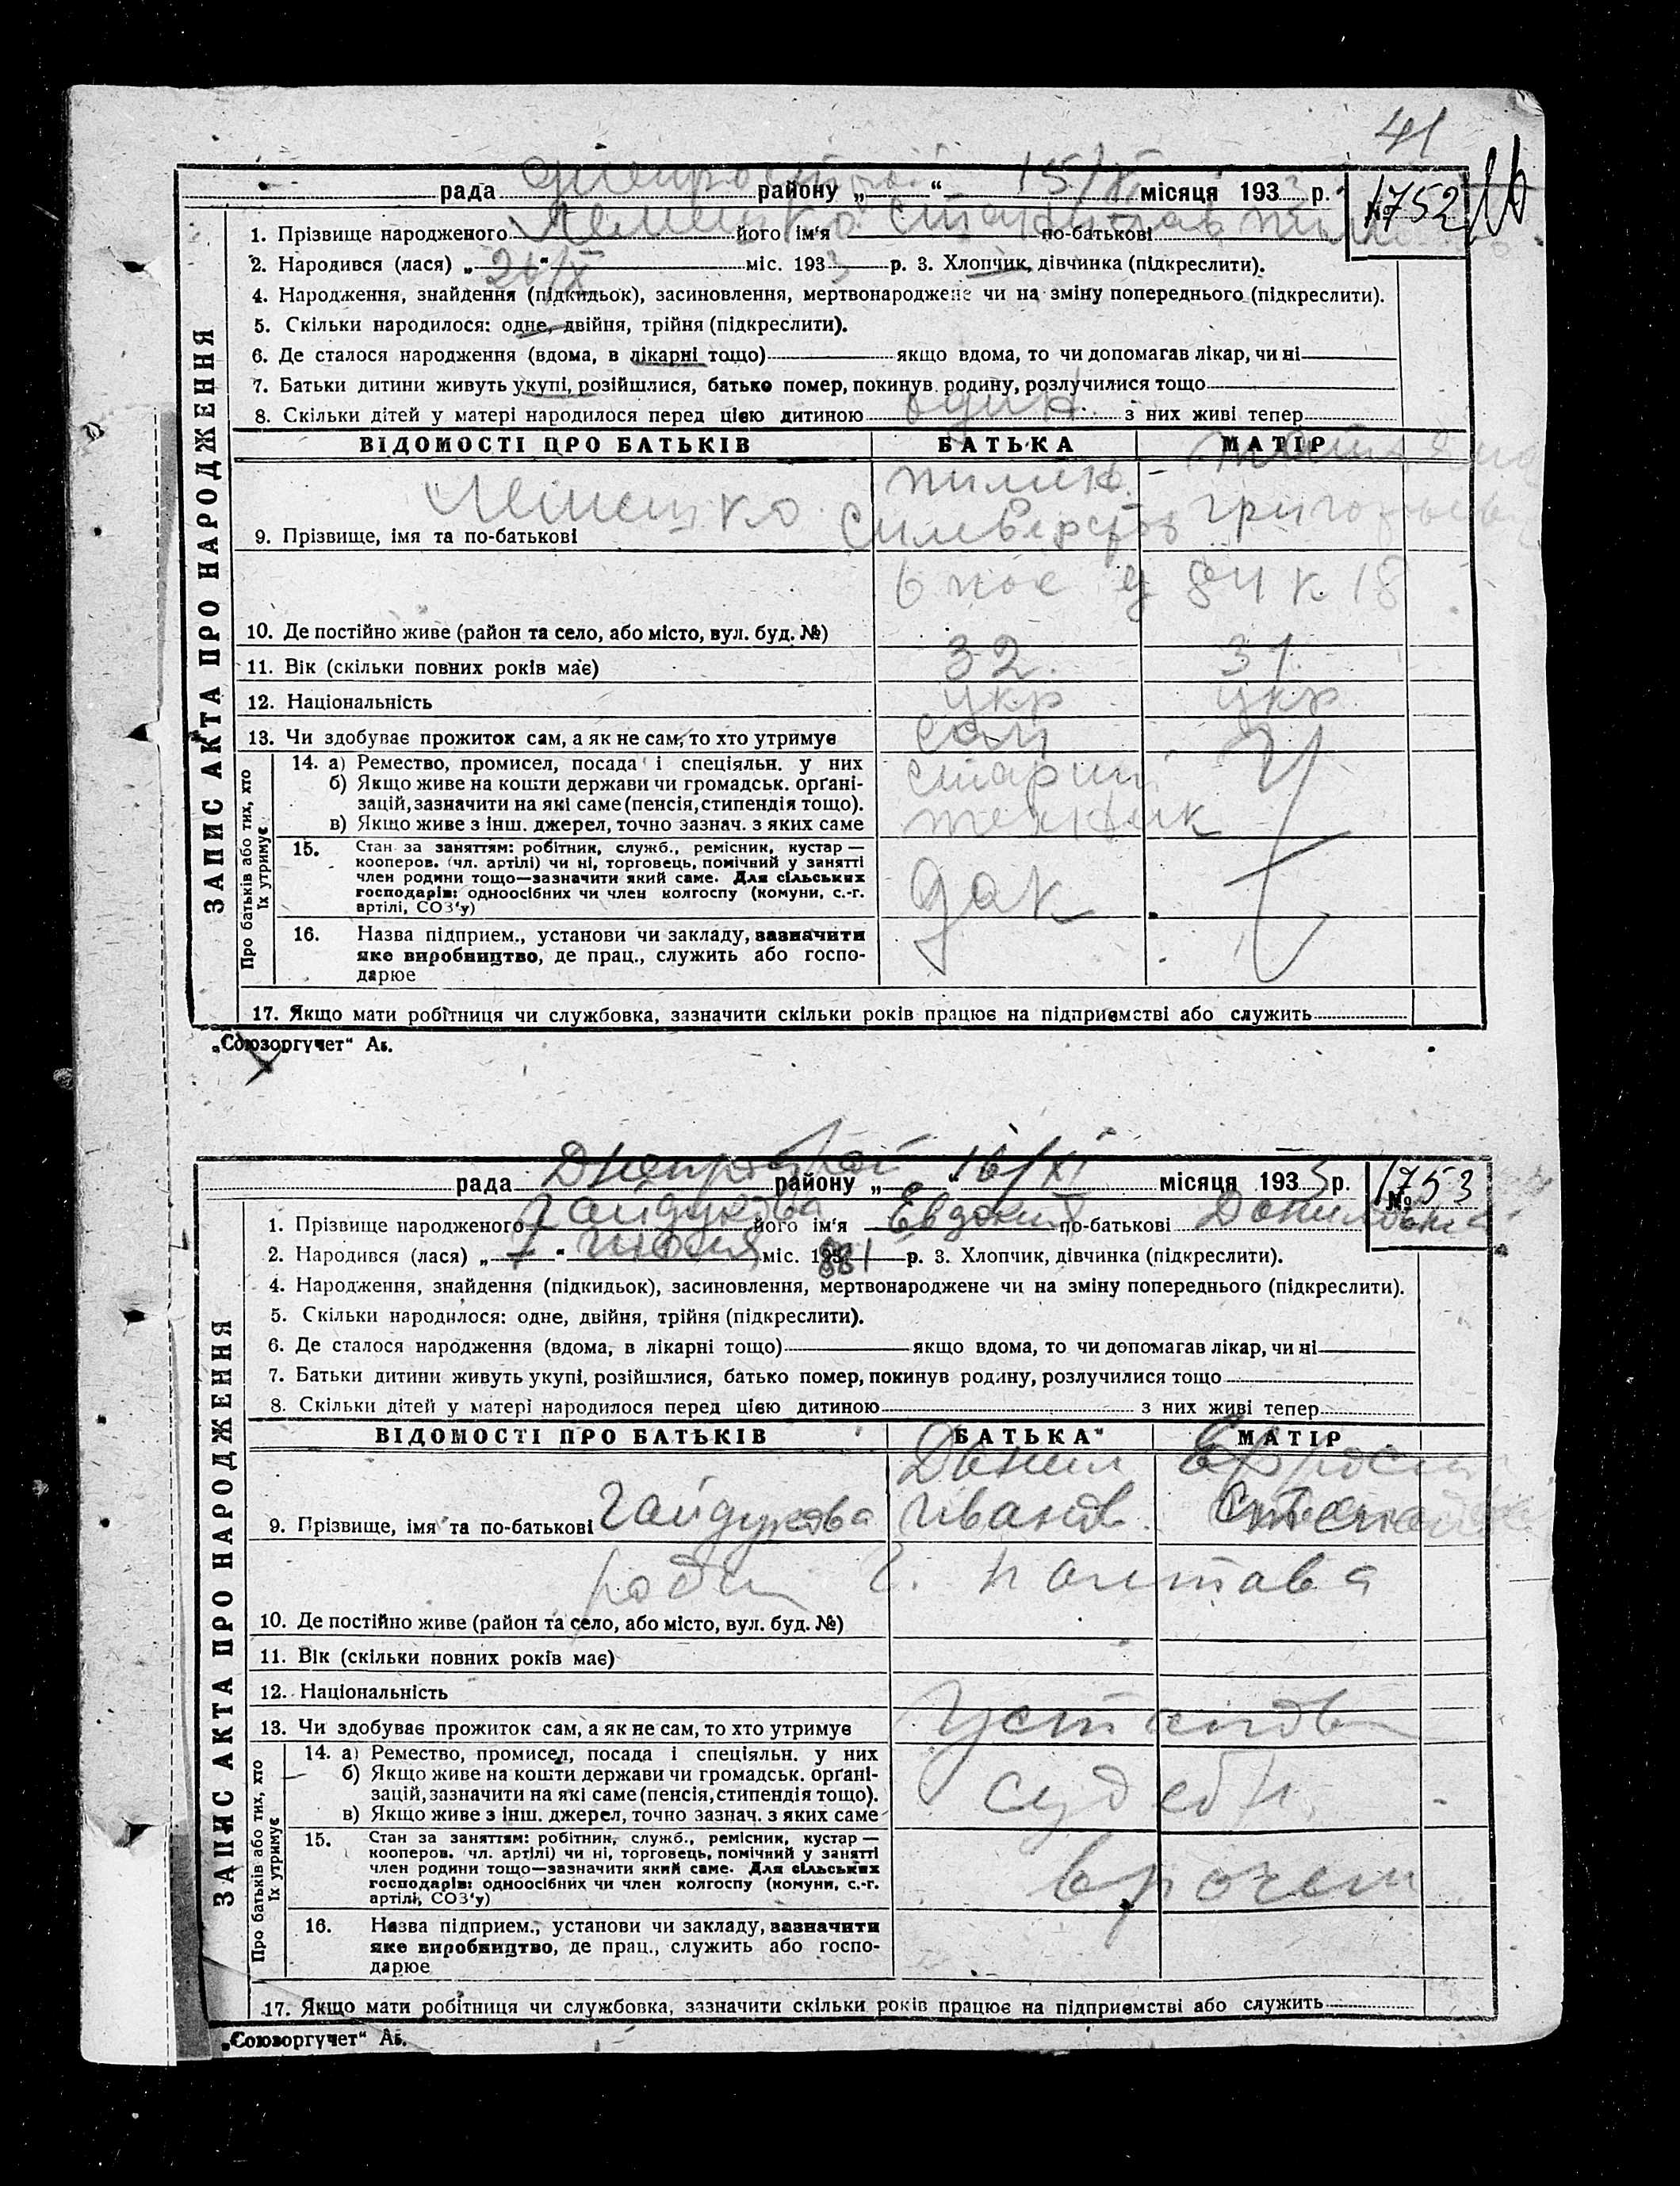 41
рада Днепрострой району „ “ 15/XI місяця 1933 р. № 1752
1. Прізвище народженого його ім'я Станислав по-батькові
2. Народився (лася) „26/X“ міс. 1933 р. 3. Хлопчик, дівчинка (підкреслити).
4. Народження, знайдення (підкидьок), засиновлення, мертвонароджене чи на зміну попереднього (підкреслити).
5. Скільки народилося: одне, двійня, трійня (підкреслити).
6. Де сталося народження (вдома, в лікарні тощо) якщо вдома, то чи допомагав лікар, чи ні
7. Батьки дитини живуть укупі, розійшлися, батько помер, покинув родину, розлучилися тощо
8. Скільки дітей у матері народилося перед цією дитиною один. з них живі тепер
ВІДОМОСТІ ПРО БАТЬКІВ БАТЬКА МАТІР
9. Прізвище, імя та по-батькові
6 пос д 84 к 18
10. Де постійно живе (район та село, або місто, вул. буд. №)
11. Вік (скільки повних років має) 32. 31.
12. Національність укр укр.
13. Чи здобуває прожиток сам, а як не сам, то хто утримує сам
14. а) Ремество, промисел, посада і спеціяльн. у них старший
б) Якщо живе на кошти держави чи громадськ. орґані-
зацій, зазначити на які саме (пенсія, стипендія тощо).
в) Якщо живе з інш. джерел, точно зазнач. з яких саме техник
15. Стан за заняттям: робітник, служб., ремісник, кустар —
кооперов. (чл. артілі) чи ні, торговець, помічний у занятті
член родини тощо—зазначити який саме. Для сільських
господарів: одноосібних чи член колгоспу (комуни, с.-г.
артілі, СОЗ'у)
16. Назва підприєм., установи чи закладу, зазначити
яке виробництво, де прац., служить або госпо-
дарює
17. Якщо мати робітниця чи службовка, зазначити скільки років працює на підприємстві або служить
ЗАПИС АКТА ПРО НАРОДЖЕННЯ
Про батьків або тих, хто
їх утримує
„Союзоргучет“ Аб.
рада Днепрострой району „ “ 16/XI місяця 1933 р. № 1753
1. Прізвище народженого Гайдукова його ім'я Евдокия по-батькові Даниловна
2. Народився (лася) „7“ июля міс. 1881 р. 3. Хлопчик, дівчинка (підкреслити).
4. Народження, знайдення (підкидьок), засиновлення, мертвонароджене чи на зміну попереднього (підкреслити).
5. Скільки народилося: одне, двійня, трійня (підкреслити).
6. Де сталося народження (вдома, в лікарні тощо) якщо вдома, то чи допомагав лікар, чи ні
7. Батьки дитини живуть укупі, розійшлися, батько помер, покинув родину, розлучилися тощо
8. Скільки дітей у матері народилося перед цією дитиною з них живі тепер
ВІДОМОСТІ ПРО БАТЬКІВ БАТЬКА МАТІР
Данил
9. Прізвище, імя та по-батькові Гайдукова Иванов.
г. Полтава
10. Де постійно живе (район та село, або місто, вул. буд. №)
11. Вік (скільки повних років має)
12. Національність
13. Чи здобуває прожиток сам, а як не сам, то хто утримує Установ
14. а) Ремество, промисел, посада і спеціяльн. у них
б) Якщо живе на кошти держави чи громадськ. орґані- судебн.
зацій, зазначити на які саме (пенсія, стипендія тощо).
в) Якщо живе з інш. джерел, точно зазнач. з яких саме
15. Стан за заняттям: робітник, служб., ремісник, кустар —
кооперов. (чл. артілі) чи ні, торговець, помічний у занятті
член родини тощо—зазначити який саме. Для сільських
господарів: одноосібних чи член колгоспу (комуни, с.-г.
артілі, СОЗ'у)
16. Назва підприєм., установи чи закладу, зазначити
яке виробництво, де прац., служить або госпо-
дарює
17. Якщо мати робітниця чи службовка, зазначити скільки років працює на підприємстві або служить
ЗАПИС АКТА ПРО НАРОДЖЕННЯ
Про батьків або тих, хто
їх утримує
„Союзоргучет“ Аб.